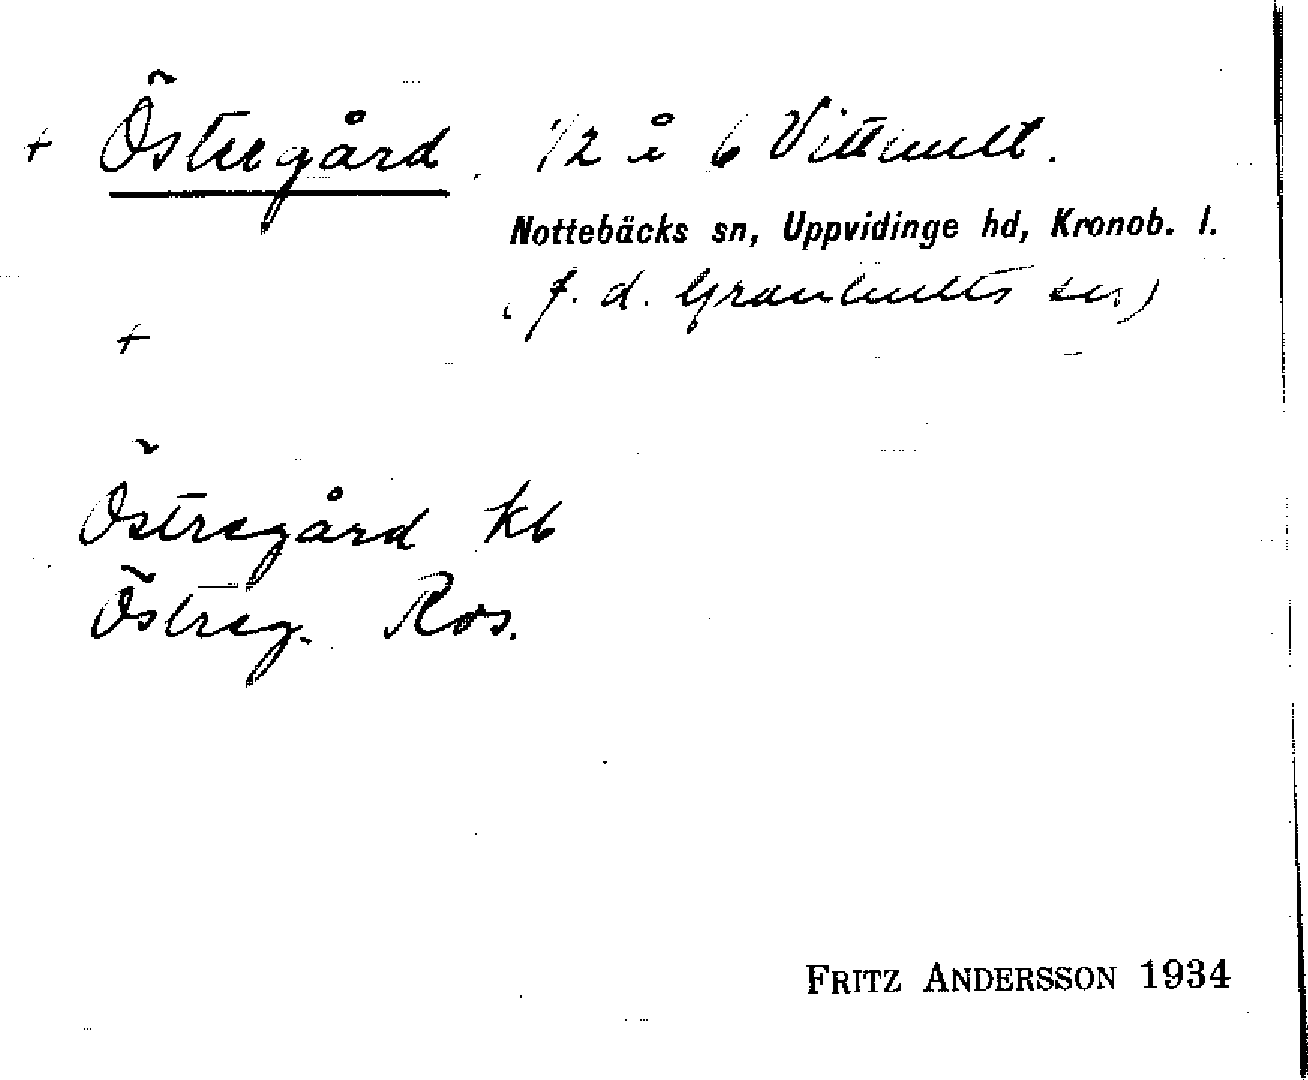 + Östergård. 1/2 å 6 Vitthult.
Nottebäcks sn, Uppvidinge hd, Kronob. l.
(f. d. Granhults sn)
+
Östregård Kb
Östreg. Ros.
FRITZ ANDERSSON 1934